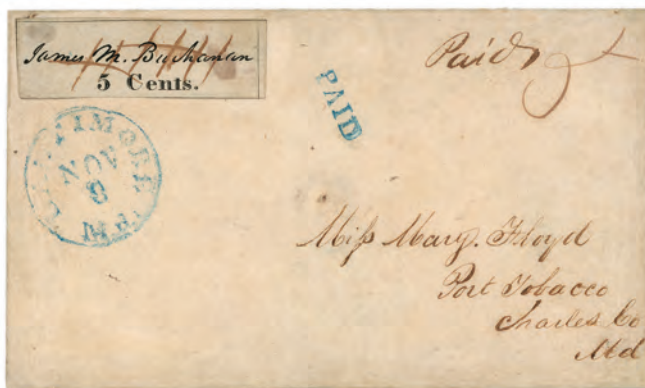 James M. Buchanan
5 Cents.
Paid 5
PAID
BALTIMORE Md.
NOV
8
Miſs Mary. Floyd
Port Tobacco
Charles Co
Md